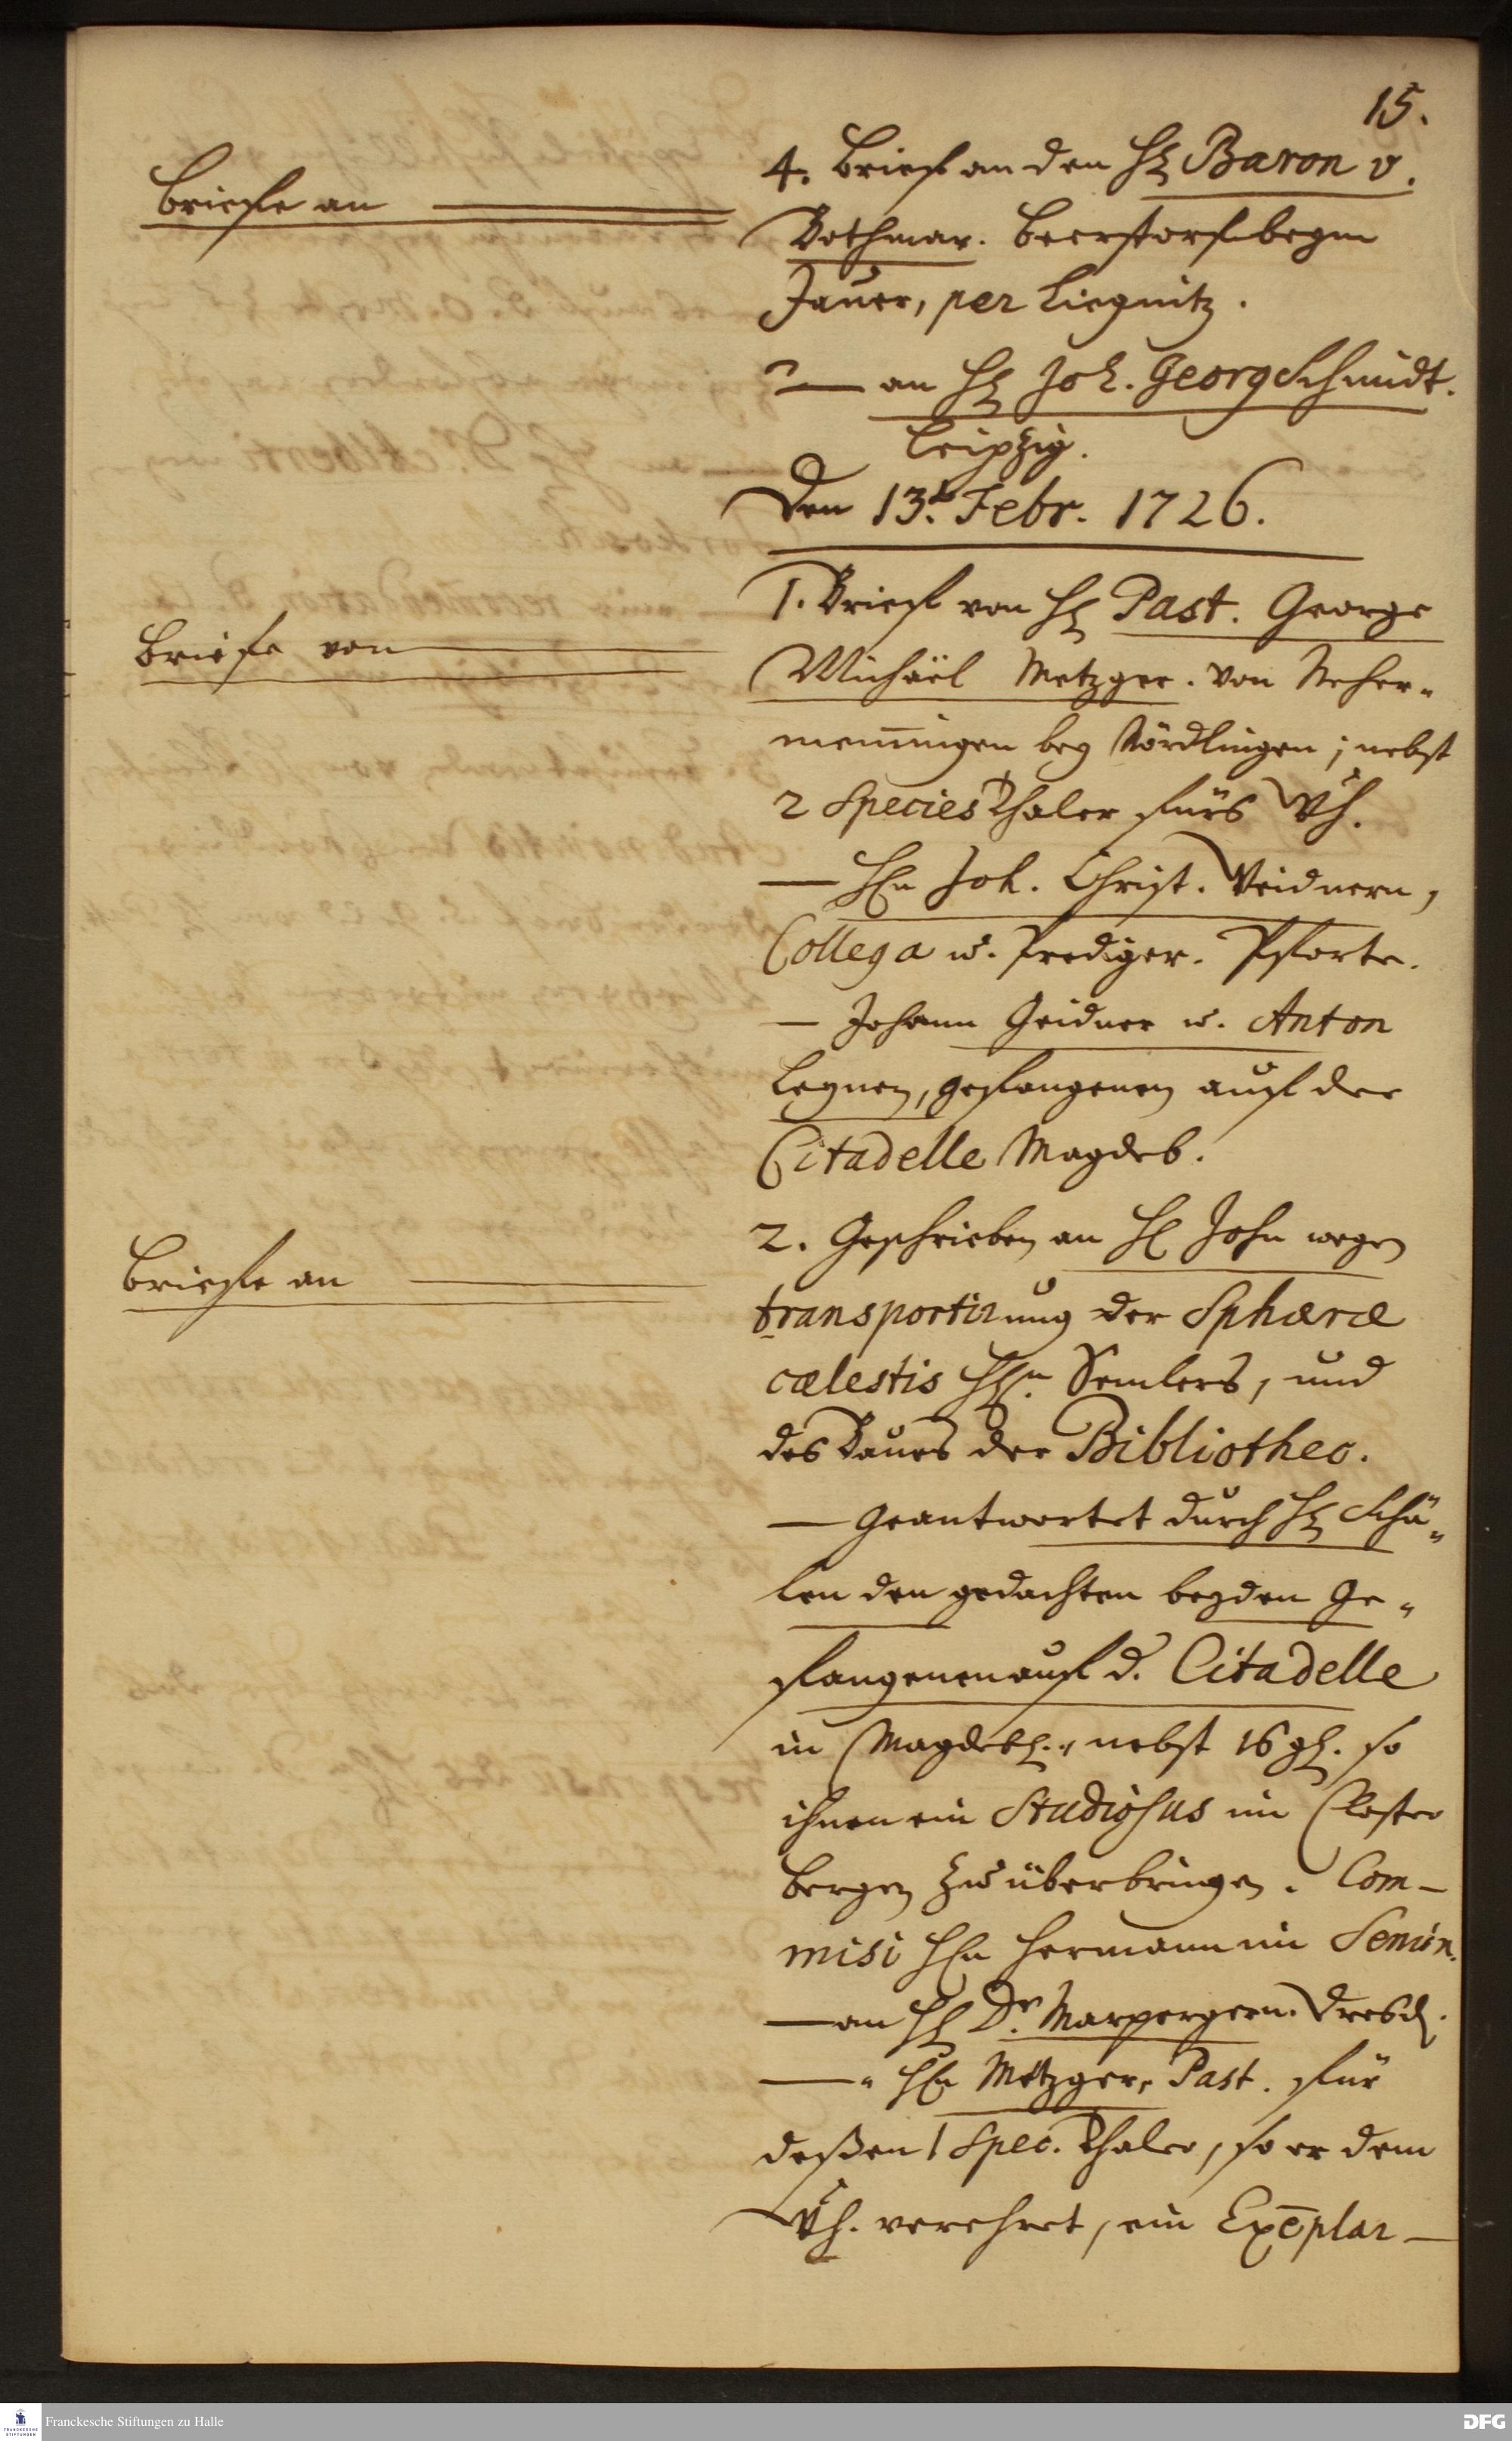 15.
Briefe an
4. Brief an den H. Baron v.
Bothmar. Beerstorf beym
Jauer, per Liegnitz.
— an H. Joh. Georg Schmidt.
Leipzig.
Den 13t. Febr. 1726.
Briefe von
1. Brief von H. Past. George
Michäel Metzger. von Neher-
memmingen bey Nördlingen; nebst
2 Species Thaler fürs Wh.
— HEn Joh. Christ. Weidnern,
Collega u. Prediger. Pforte.
— Johann Geidner u. Anton
Legnen, gefangenen auf der
Citadelle Magdeb.
Briefe an
2. Geschrieben an H. John wegen
transportirung der Sphæræ
cælestis HEn. Semlers, und
des Baues der Bibliothec.
— geantwortet durch H. Schä-
len den gedachten beyden Ge-
fangenen auf d. Citadelle
in Magdeb., nebst 16 gl. so
ihnen ein Studiosus im Closter
Bergen zu überbringen. Com-
misi HEn Hermann im Semin.
— an H. Dr. Marpergern. Dresd.
— " HEn Metzger, Past. für
deßen 1 Spec. Thaler, so er dem
Wh. verehret, ein Exēplar —
Franckesche Stiftungen zu Halle
FRANCKESCHE
STIFTUNGEN
DFG